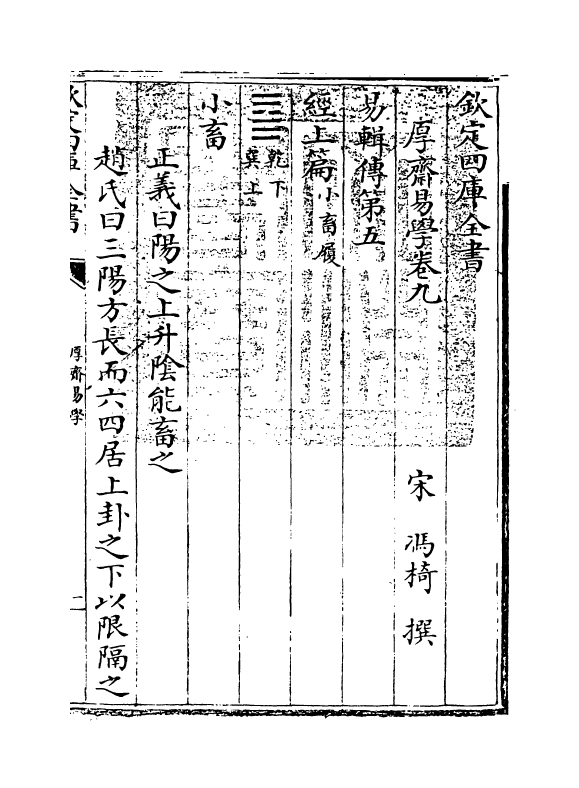 欽定四庫全書
厚齋易學卷九
宋 馮椅 撰
易輯傳第五
經上篇 小畜履
䷈ 乾下
巽上
小畜
正義曰陽之上升陰能畜之
趙氏曰三陽方長而六四居上卦之下以限隔之
欽定四庫全書
厚齋易學